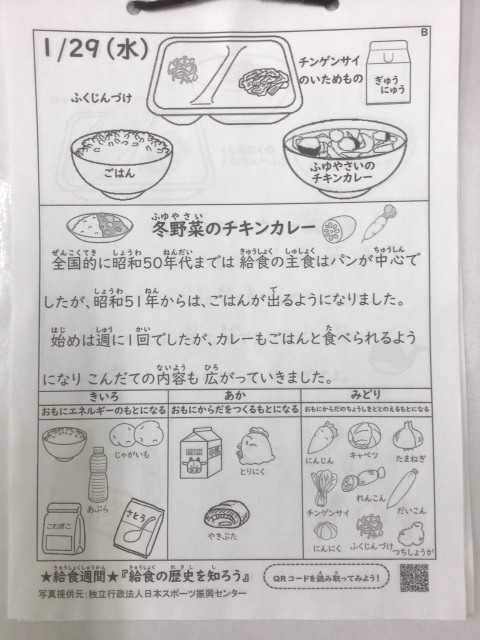 B
1/29(水)
チンゲンサイ
のいためもの
ぎゅう
にゅう
ふくじんづけ
ごはん
ふゆやさいの
チキンカレー
ふゆやさい
冬野菜のチキンカレー
ぜんこくてき しょうわ ねんだい きゅうしょく しゅしょく ちゅうしん
全国的に昭和50年代までは 給食の主食はパンが中心で
しょうわ ねん で
したが、昭和51年からは、ごはんが出るようになりました。
はじ しゅう かい た
始めは週に1回でしたが、カレーもごはんと食べられるよう
ないよう ひろ
になり こんだての内容も 広がっていきました。
きいろ あか みどり
おもにエネルギーのもとになる おもにからだをつくるもとになる おもにからだのちょうしをととのえるもとになる
じゃがいも
あぶら
こむぎこ
さとう
とりにく
やきぶた
にんじん キャベツ たまねぎ
チンゲンサイ れんこん だいこん
にんにく ふくじんづけ つちしょうが
きゅうしょくしゅうかん きゅうしょく れきし し
★給食週間★『給食の歴史を知ろう』
写真提供元:独立行政法人日本スポーツ振興センター
QRコードを読み取ってみよう!